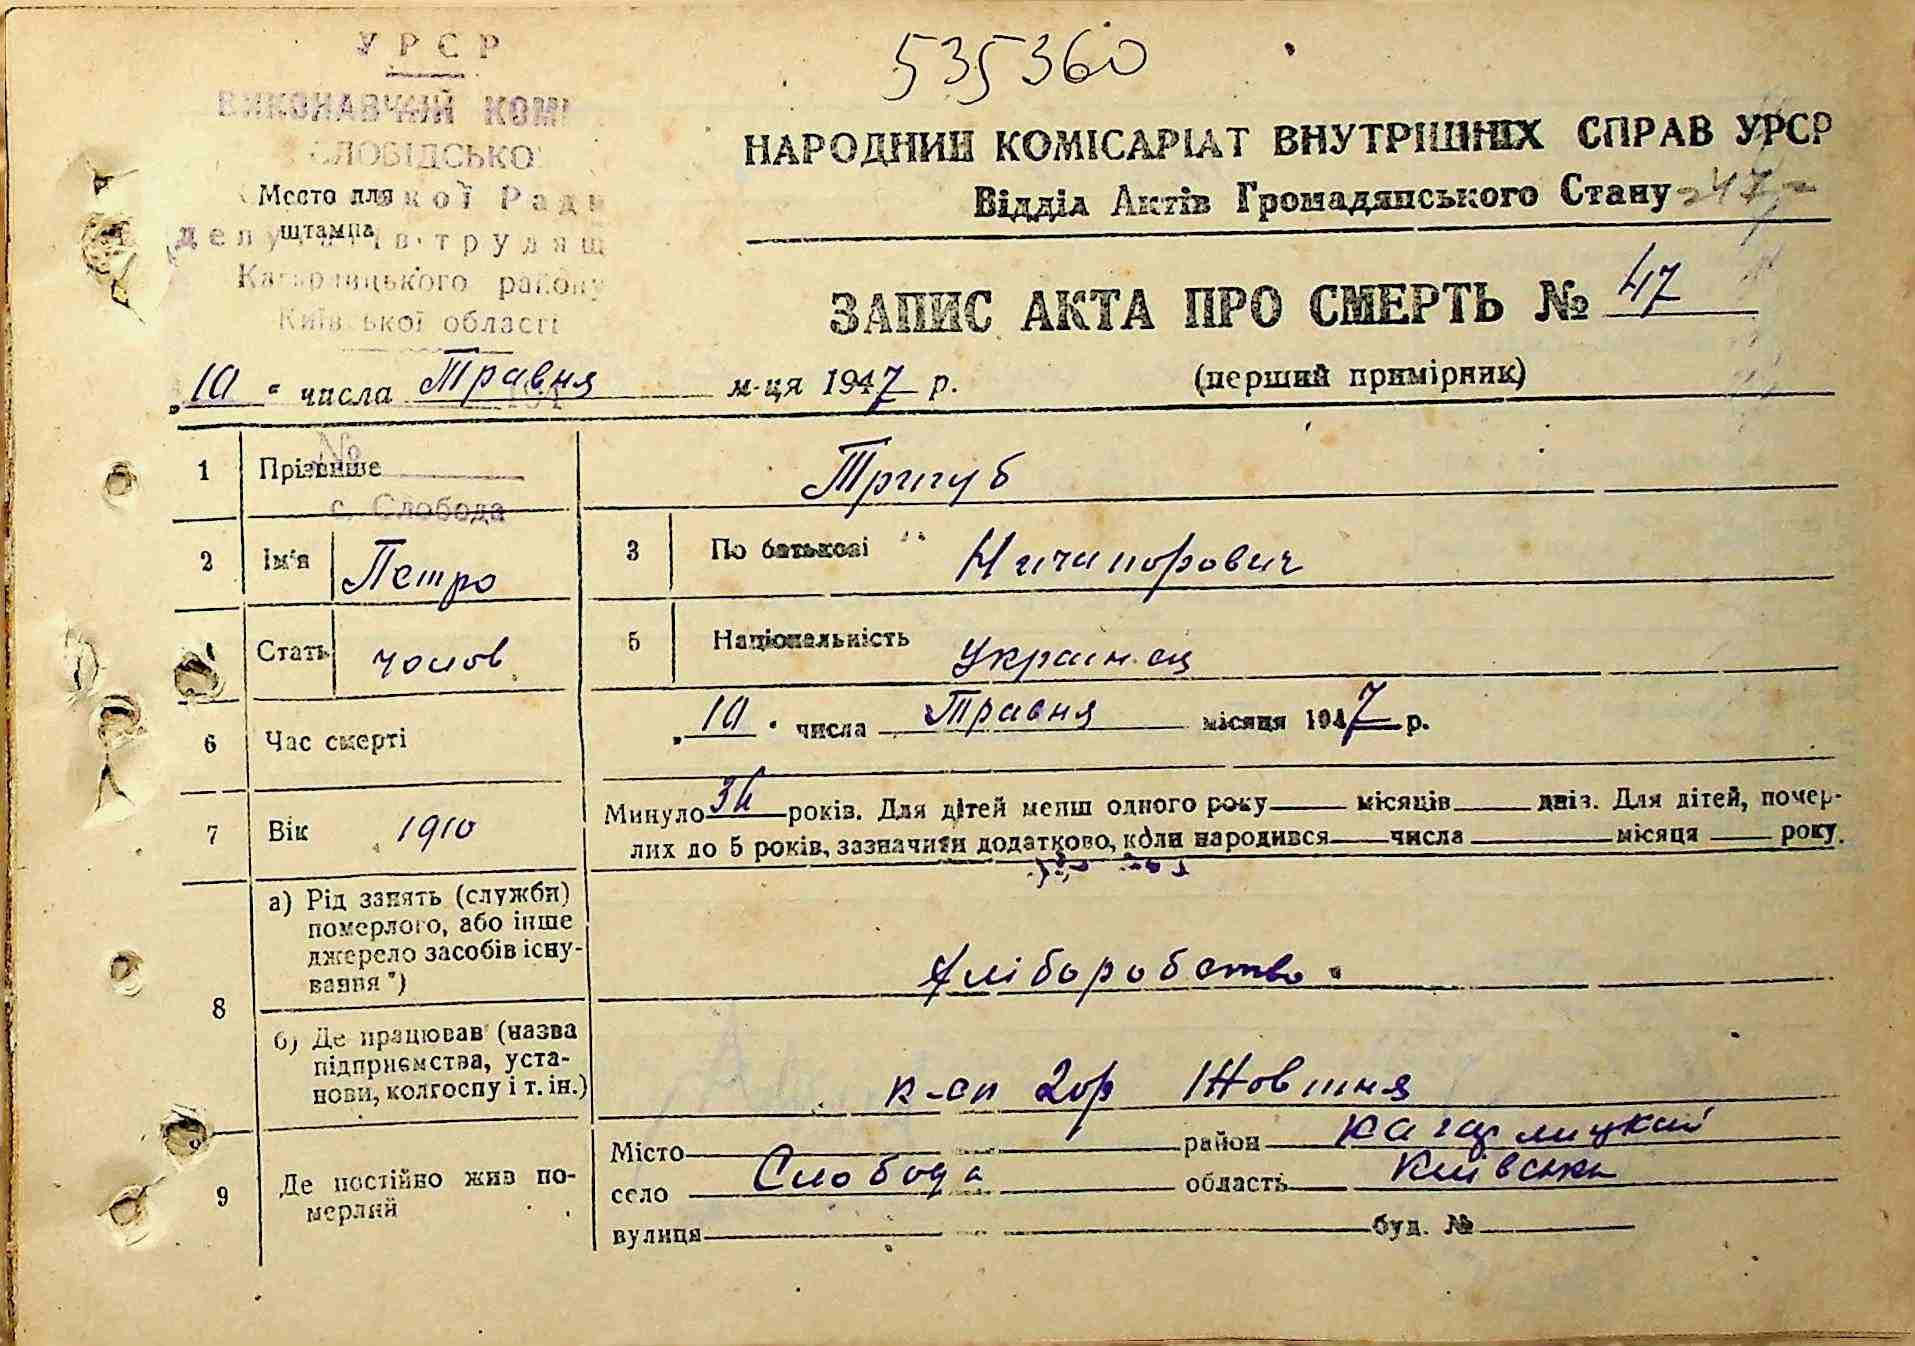 535360
УРСР
ВИКОНАВЧИЙ КОМІ
СЛОВІДСЬКО
кої Ради
депу ів трудящ
Кагарлицького району
Київської області
Место для
штампа
НАРОДНИЙ КОМІСАРІАТ ВНУТРІШНІХ СПРАВ УРСР
Відділ Актів Громадянського Стану
247
ЗАПИС АКТА ПРО СМЕРТЬ № 47
„10 " числа Травня м-ця 1947 р.
(перший примірник)
№
с. Слобода
1 Прізвище Тригуб
2 Ім'я Петро 3 По батькові Ничипорович
Стать чолов 5 Національність Украинец
6 Час смерті „10 " числа Травня місяця 1947 р.
7 Вік 1910 Минуло років. Для дітей менш одного року місяців днів. Для дітей, помер-
лих до 5 років, зазначити додатково, коли народився числа місяця року.
8 а) Рід занять (служби)
померлого, або інше
джерело засобів існу-
вання *)
Хліборобство
б) Де працював (назва
підприємства, уста-
нови, колгоспу і т. ін.)
к-сп 20р Жовтня
9 Де постійно жив по-
мерлий
Місто район Кагарлицкий
село Слобода область Київська
вулиця буд. №